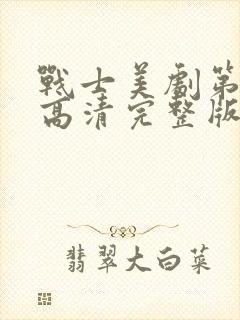 戰士美劇第
高清完整版
翡翠大白菜